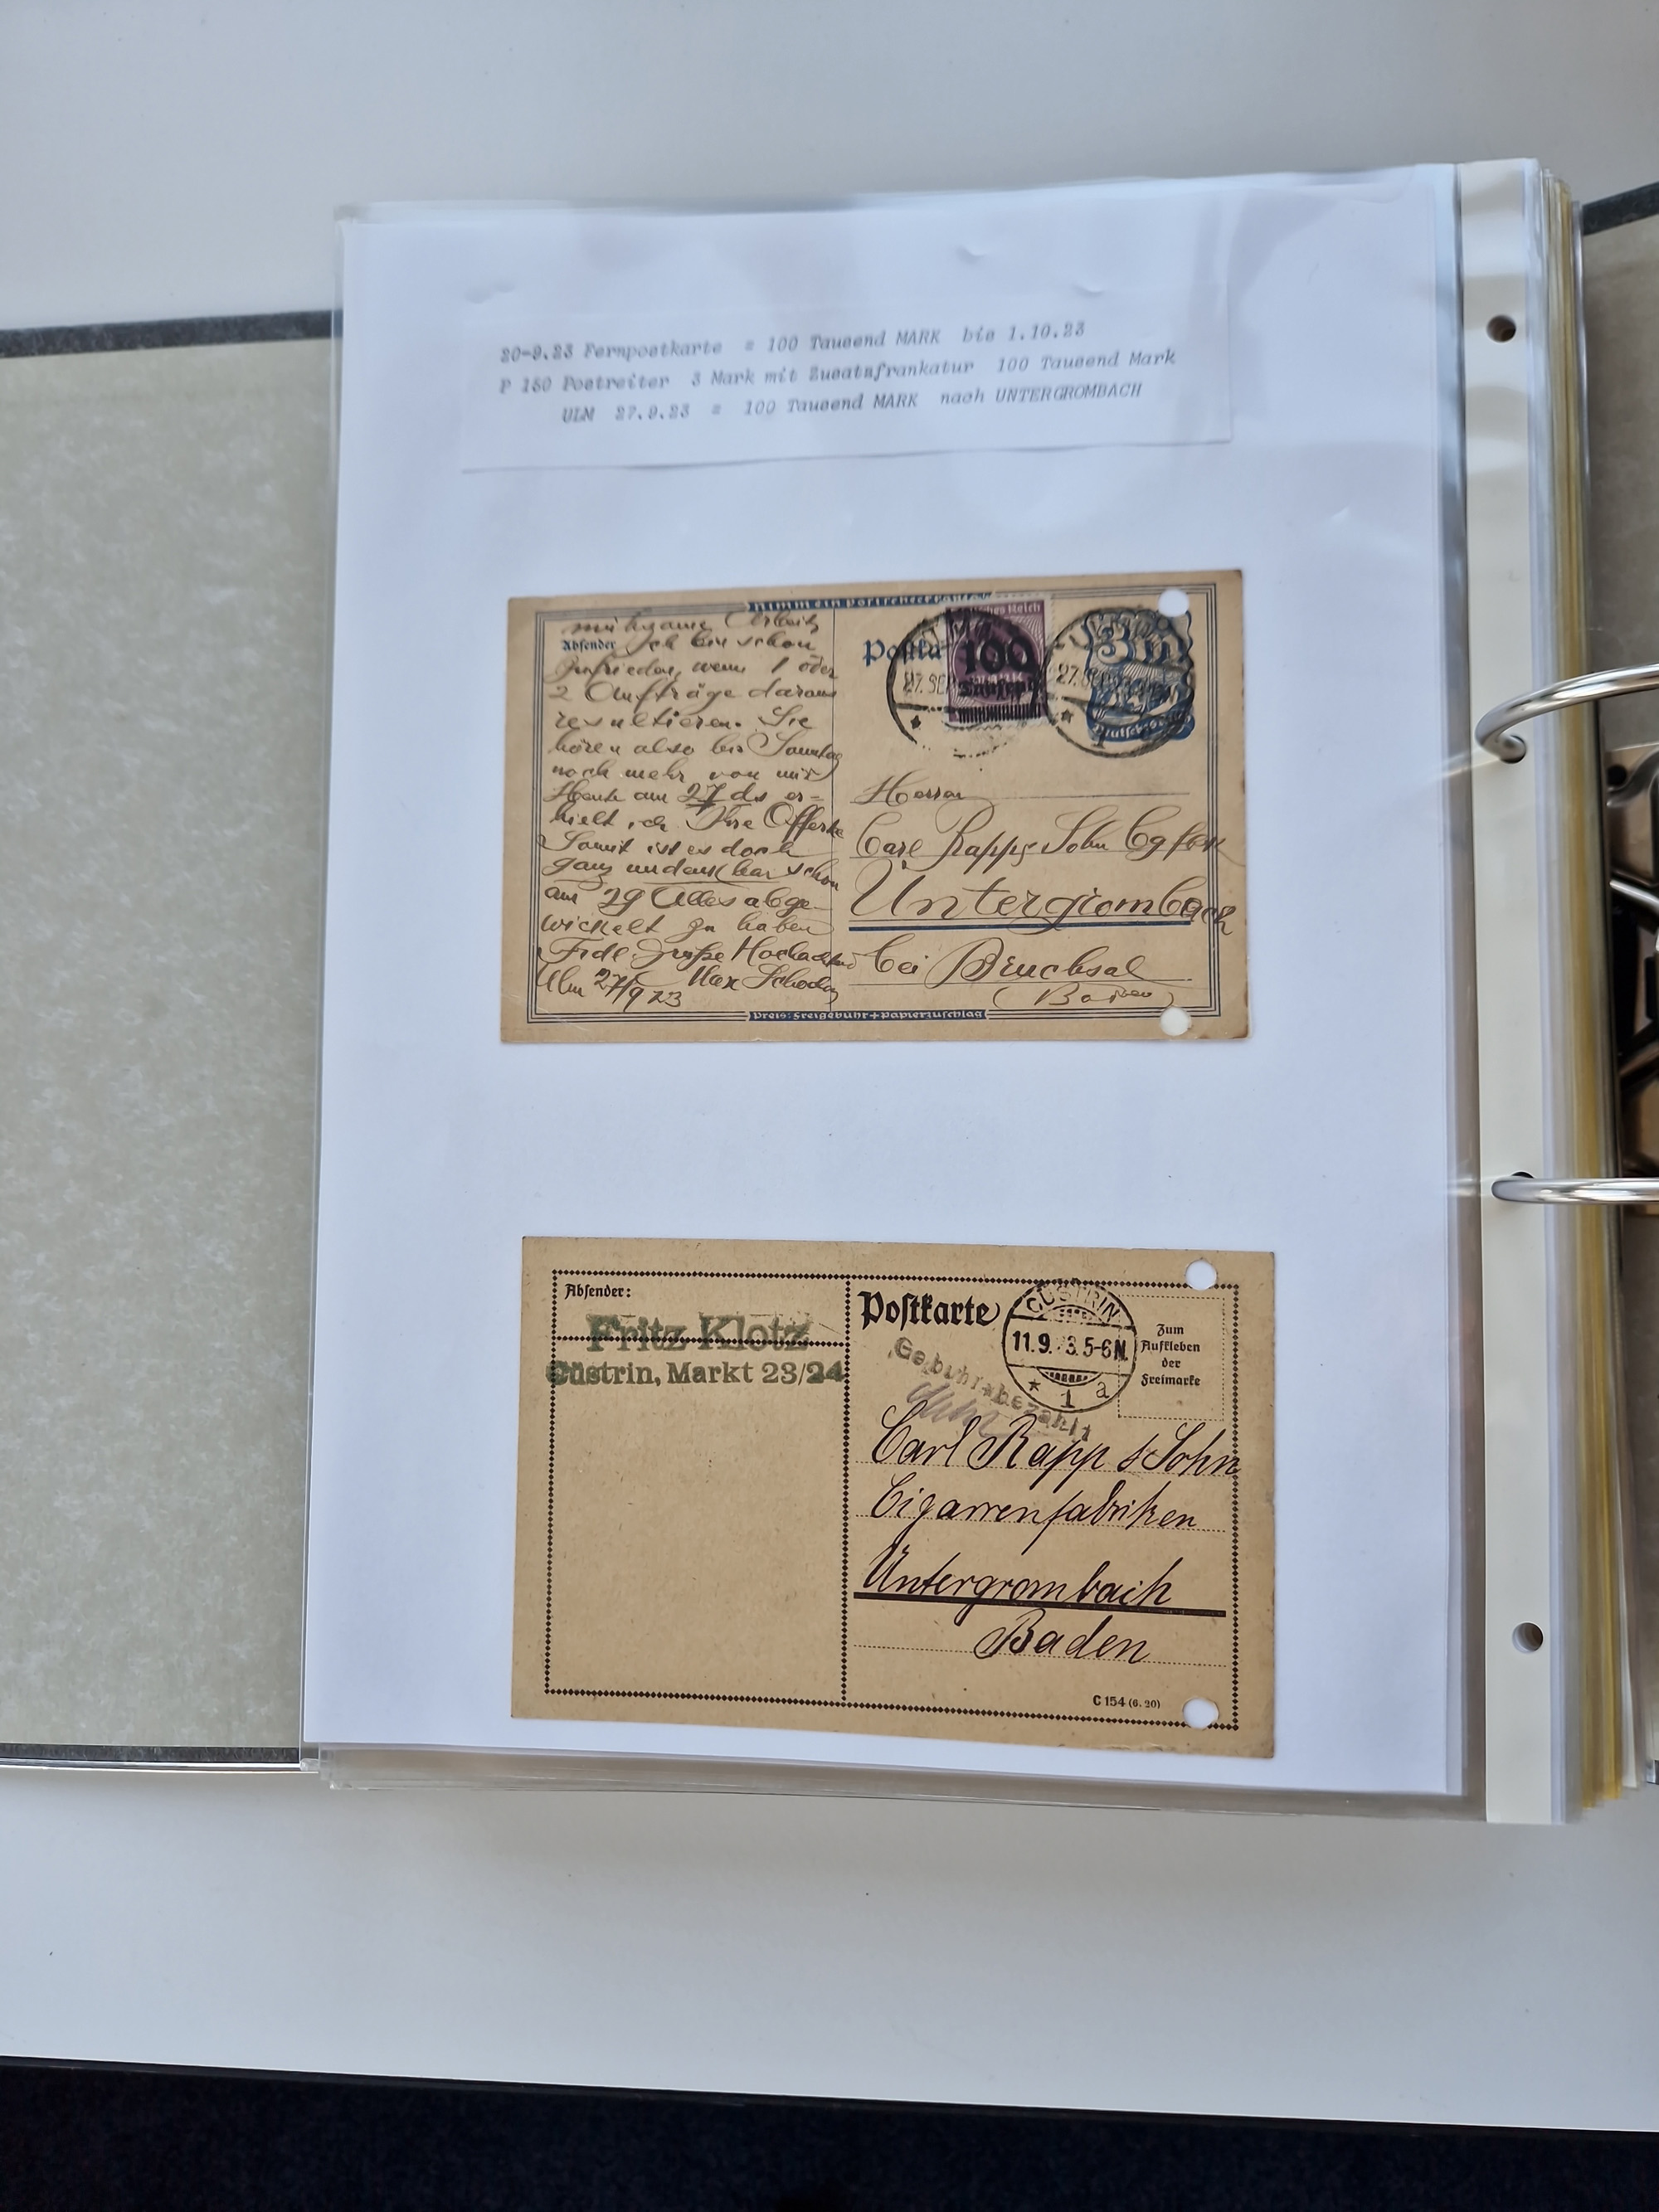 20-9.23 Fernpostkarte = 100 Tausend MARK bis 1.10.23
P 150 Postreiter 3 Mark mit Zusatzfrankatur 100 Tausend Mark
ULM 27.9.23 = 100 Tausend MARK nach UNTERGROMBACH
Nimm ein
Absender
ich bin schon
zufrieden, wenn 1 oder
2 Aufträge daraus
resultieren. Sie
hören also bis Sonntag
noch mehr von mir
Heute am 27 ds er-
hielt ich Ihre Offerte
Somit ist es doch
ganz undenkbar schon
am 29 Alles abge-
wickelt zu haben
Ulm 27/9 23 Max
Postka
Deutsches Reich
100
Tausend
27. SEP
27. SE
Herren
Carl Rapp & Sohn Cgfbk
Untergrombach
bei Bruchsal
(Baden)
Preis: Freigebühr + Papierzuschlag
Absender:
Fritz Klotz
Cüstrin, Markt 23/24
Postkarte
CÜSTRIN
11.9. 3.5-6N.
* 1 a
Zum
Aufkleben
der
Freimarke
Gebühr bezahlt
Carl Rapp & Sohn
Cigarrenfabriken
Untergrombach
Baden
C 154 (6. 20)